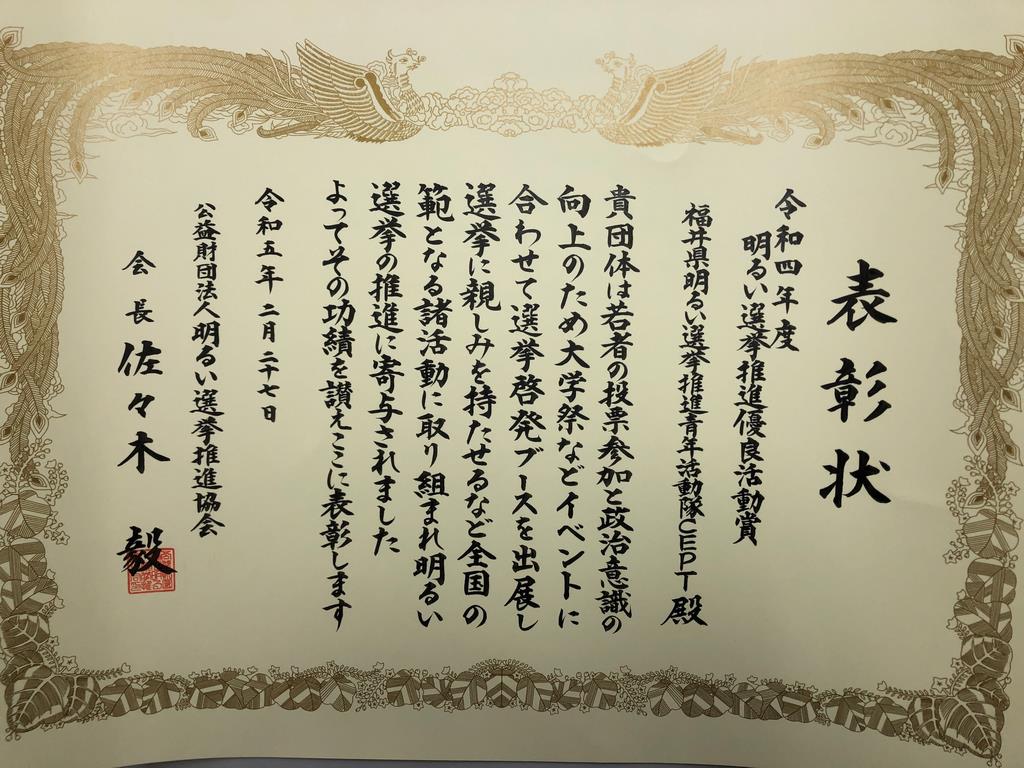 表彰状
令和四年度
明るい選挙推進優良活動賞
福井県明るい選挙推進青年活動隊CEPT殿
貴団体は若者の投票参加と政治意識の
向上のため大学祭などイベントに
合わせて選挙啓発ブースを出展し
選挙に親しみを持たせるなど全国の
範となる諸活動に取り組まれ明るい
選挙の推進に寄与されました
よってその功績を讃えここに表彰します
令和五年二月二十七日
公益財団法人明るい選挙推進協会
会長佐々木毅